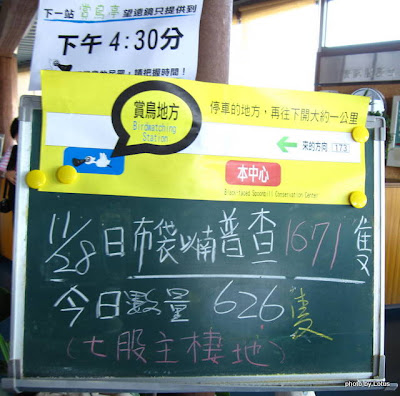 下一站 賞鳥亭 望遠鏡只提供到
下午 4:30分
請把握時間!
賞鳥地方
Birdwatching
Station
停車的地方,再往下開大約一公里
來的方向 173
本中心
Black-faced Spoonbill Conservation Center
11/28日布袋以南普查1671隻
今日數量 626隻
(七股主棲地)
photo by Lotus